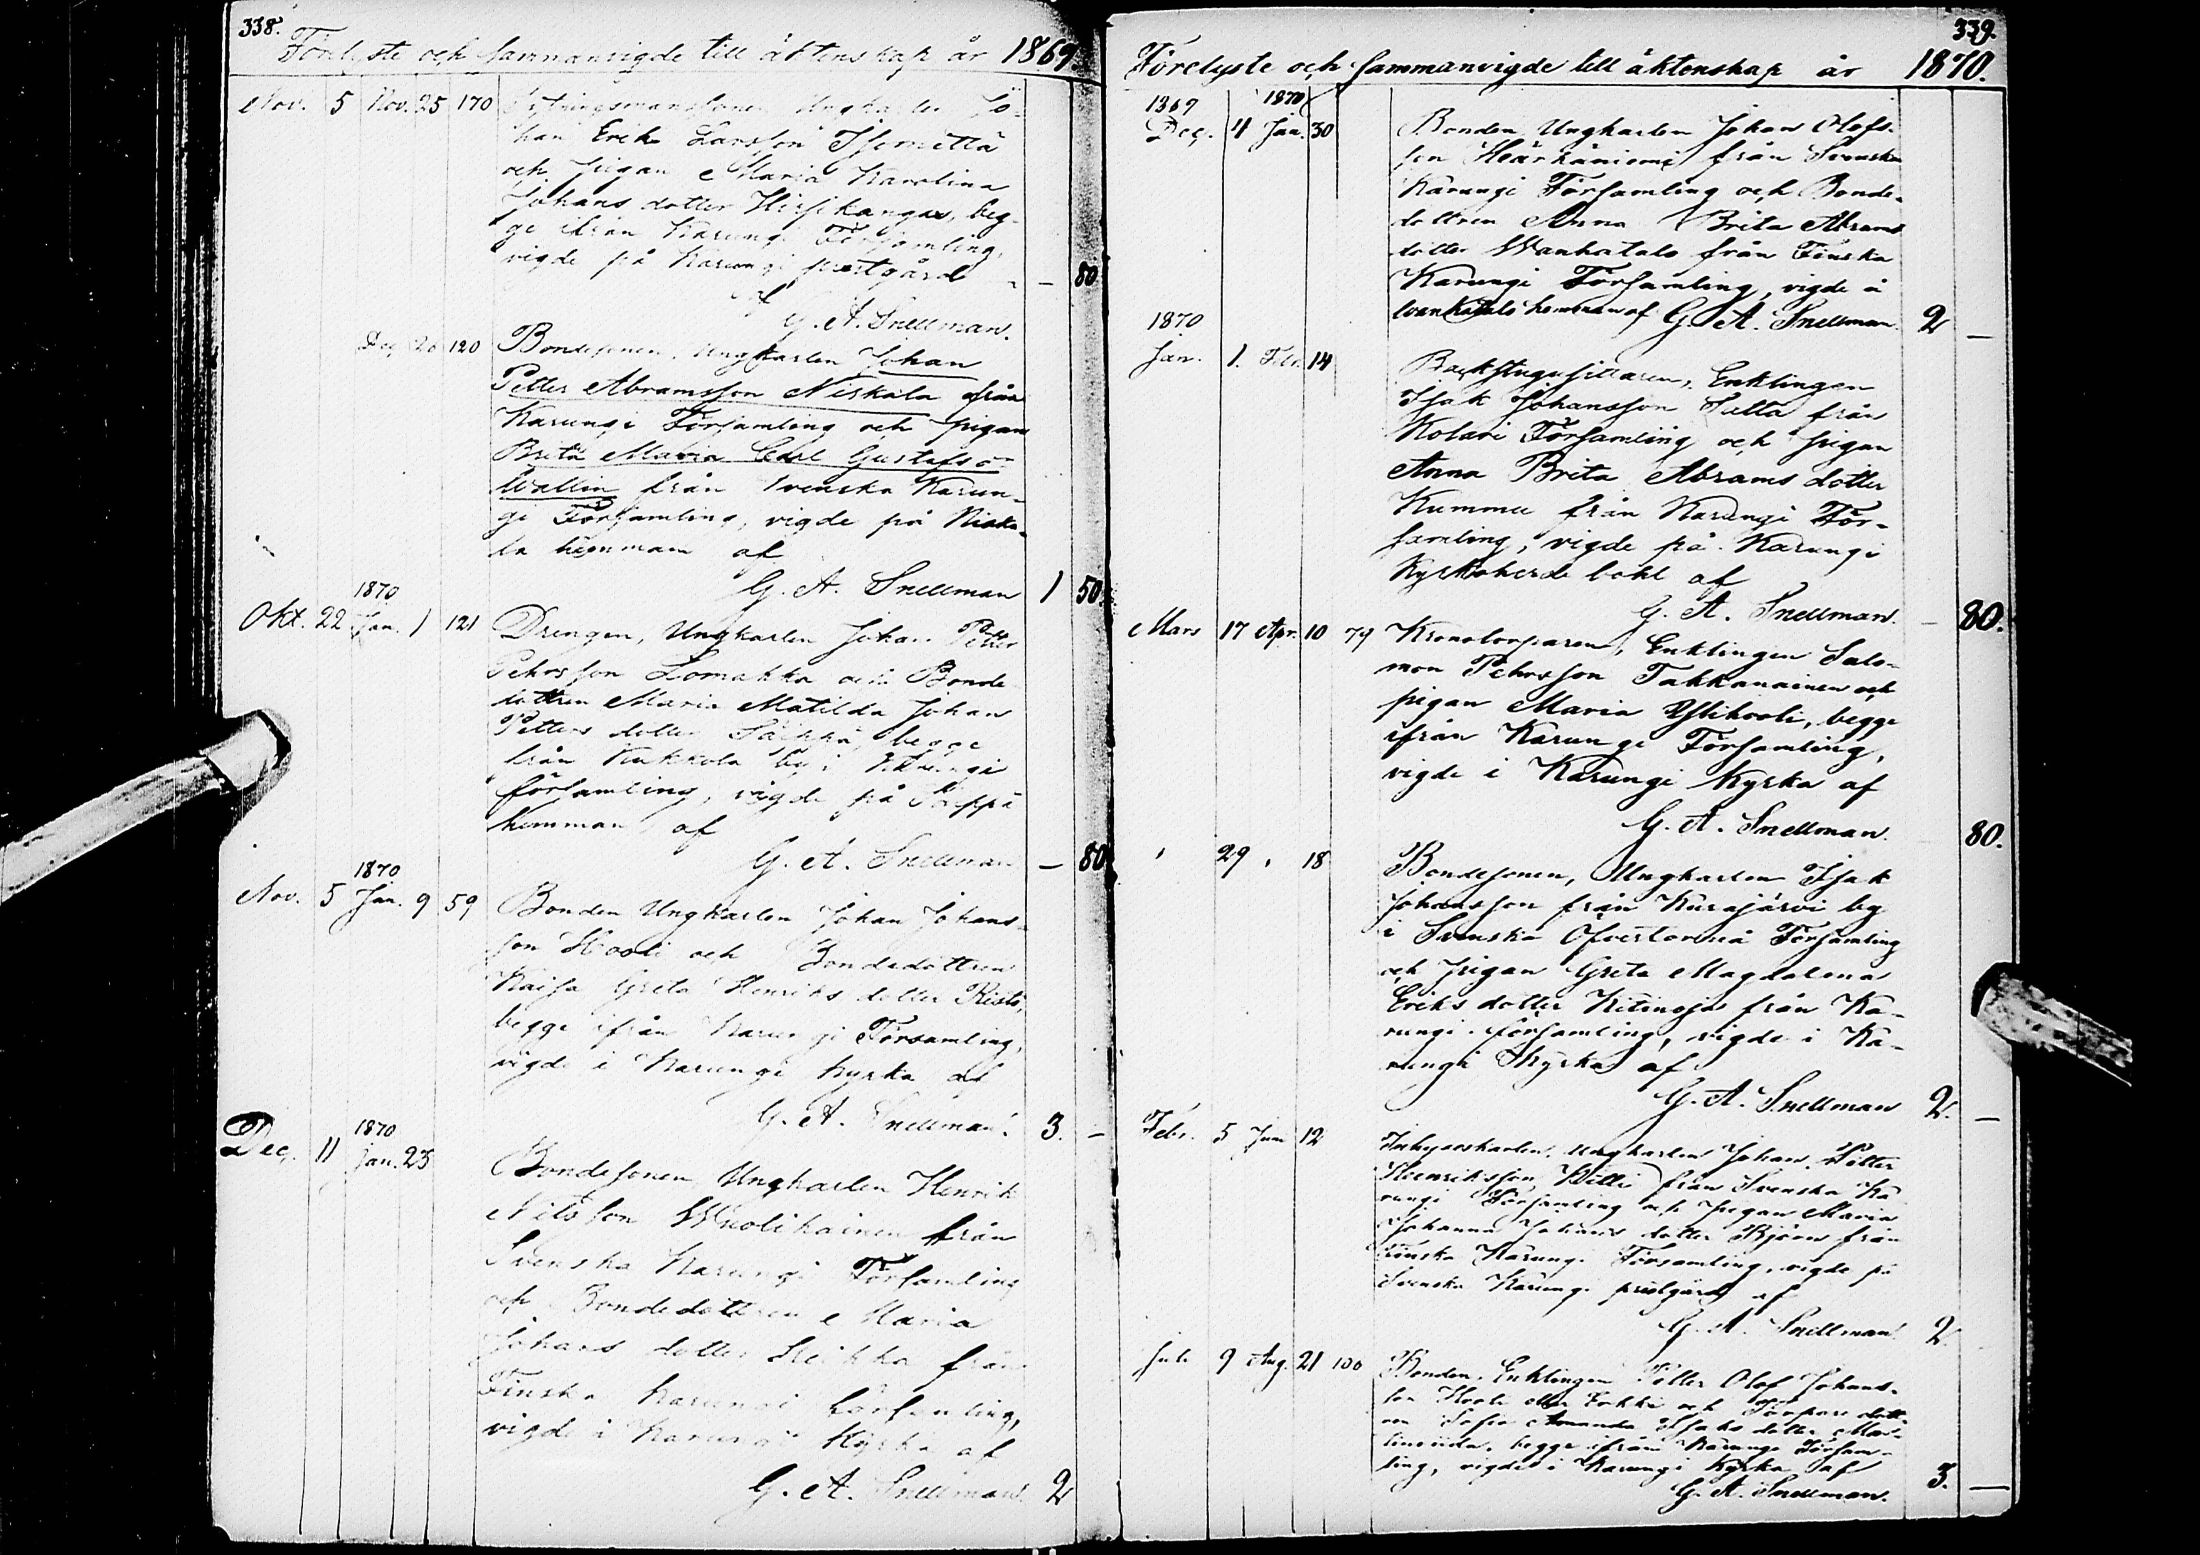 338.
Förelyste och Sammanvigde till äktenskap år 1869.
Nov. 5 Nov. 25 170
han Erik Larsson
och pigan Maria Karolina
Johans dotter Hirsikangas, beg-
ge ifrån Karungi Församling,
vigde på Karungi prestgård — 80.
af
G. A. Snellman.
Dec. 120 Bondesonen, Ungkarlen Johan
Petter Abramsson Niskala från
Karungi Församling och pigan
Brita Maria Carl Gustafs d-
Wallin från Svenska Karun-
gi Församling, vigde på Niska-
la hemman af
G. A. Snellman 1 50.
1870
Okt. 22 Jan. 1 121 Drengen, Ungkarlen Johan Petter
Pehrsson Lomakka och Bonde
dottren Maria Matilda Johan
Petters dotter begge
från Kukkola by i Karungi
församling, vigde på
hemman af
G. A. Snellman — 80
1870
Nov. 5 Jan. 9 59 Bonden Ungkarlen Johan Johans-
son Hooli och Bondedottren
Kaisa Greta Henriks dotter Risti,
begge ifrån Karungi Församling,
vigde i Karungi kyrka af
G. A. Snellman. 3. —
1870
Dec. 11 Jan. 23
Bondesonen, Ungkarlen Henrik
Nilsson från
Svenska Karungi Församling
och Bondedottren Maria
Johans dotter från
Finska Karungi församling,
vigde i Karungi Kyrka af
G. A. Snellman. 2
339.
Förelyste och Sammanvigde till äktenskap år 1870.
1869 1870
Dec. 4 Jan. 30 Bonden, Ungkarlen Johan Olofs-
son från Svenska
Karungi Församling och Bonde-
dottren Anna Brita Abrams
dotter Wanhatalo från Finska
Karungi Församling, vigde å
Wanhatalo hemman af G. A. Snellman 2 —
1870
Jan. 1. Febr. 14 Backstugusittaren, Enklingen
Isak Johansson från
Kolari Församling och pigan
Anna Brita Abrams dotter
Kummu från Karungi För-
samling, vigde på Karungi
Kyrkoherde bohl af
G. A. Snellman. — 80.
Mars 17 Apr. 10 79 Kronotorparen, Enklingen Salo-
mon Pehrsson Takkanainen och
pigan Maria Ylihooli, begge
ifrån Karungi Församling,
vigde i Karungi Kyrka af
G. A. Snellman. 80.
" 29 " 18 Bondesonen, Ungkarlen Isak
Johansson från by
i Svenska Öfvertorneå Församling
och pigan Greta Magdalena
Eriks dotter Kitinoja från Ka-
rungi församling, vigde i Ka-
rungi Kyrka af
G. A. Snellman 2. —
Febr. 5 Juni 12 Ungkarlen Johan Petter
Henriksson från Svenska Ka
rungi Församling och pigan Maria
Johanna Johans dotter Björn från
Finska Karungi Församling, vigde på
Svenska Karungi prestgård af
G. A. Snellman. 2.
Juli 9 Aug. 21 100 Bonden, Enklingen Petter Olof Johans-
son Hooli eller och Torpare dott-
ren Sofia Amanda Isaks dotter
begge ifrån Karungi Försam-
ling, vigde i Karungi Kyrka af
G. A. Snellman. 3. —